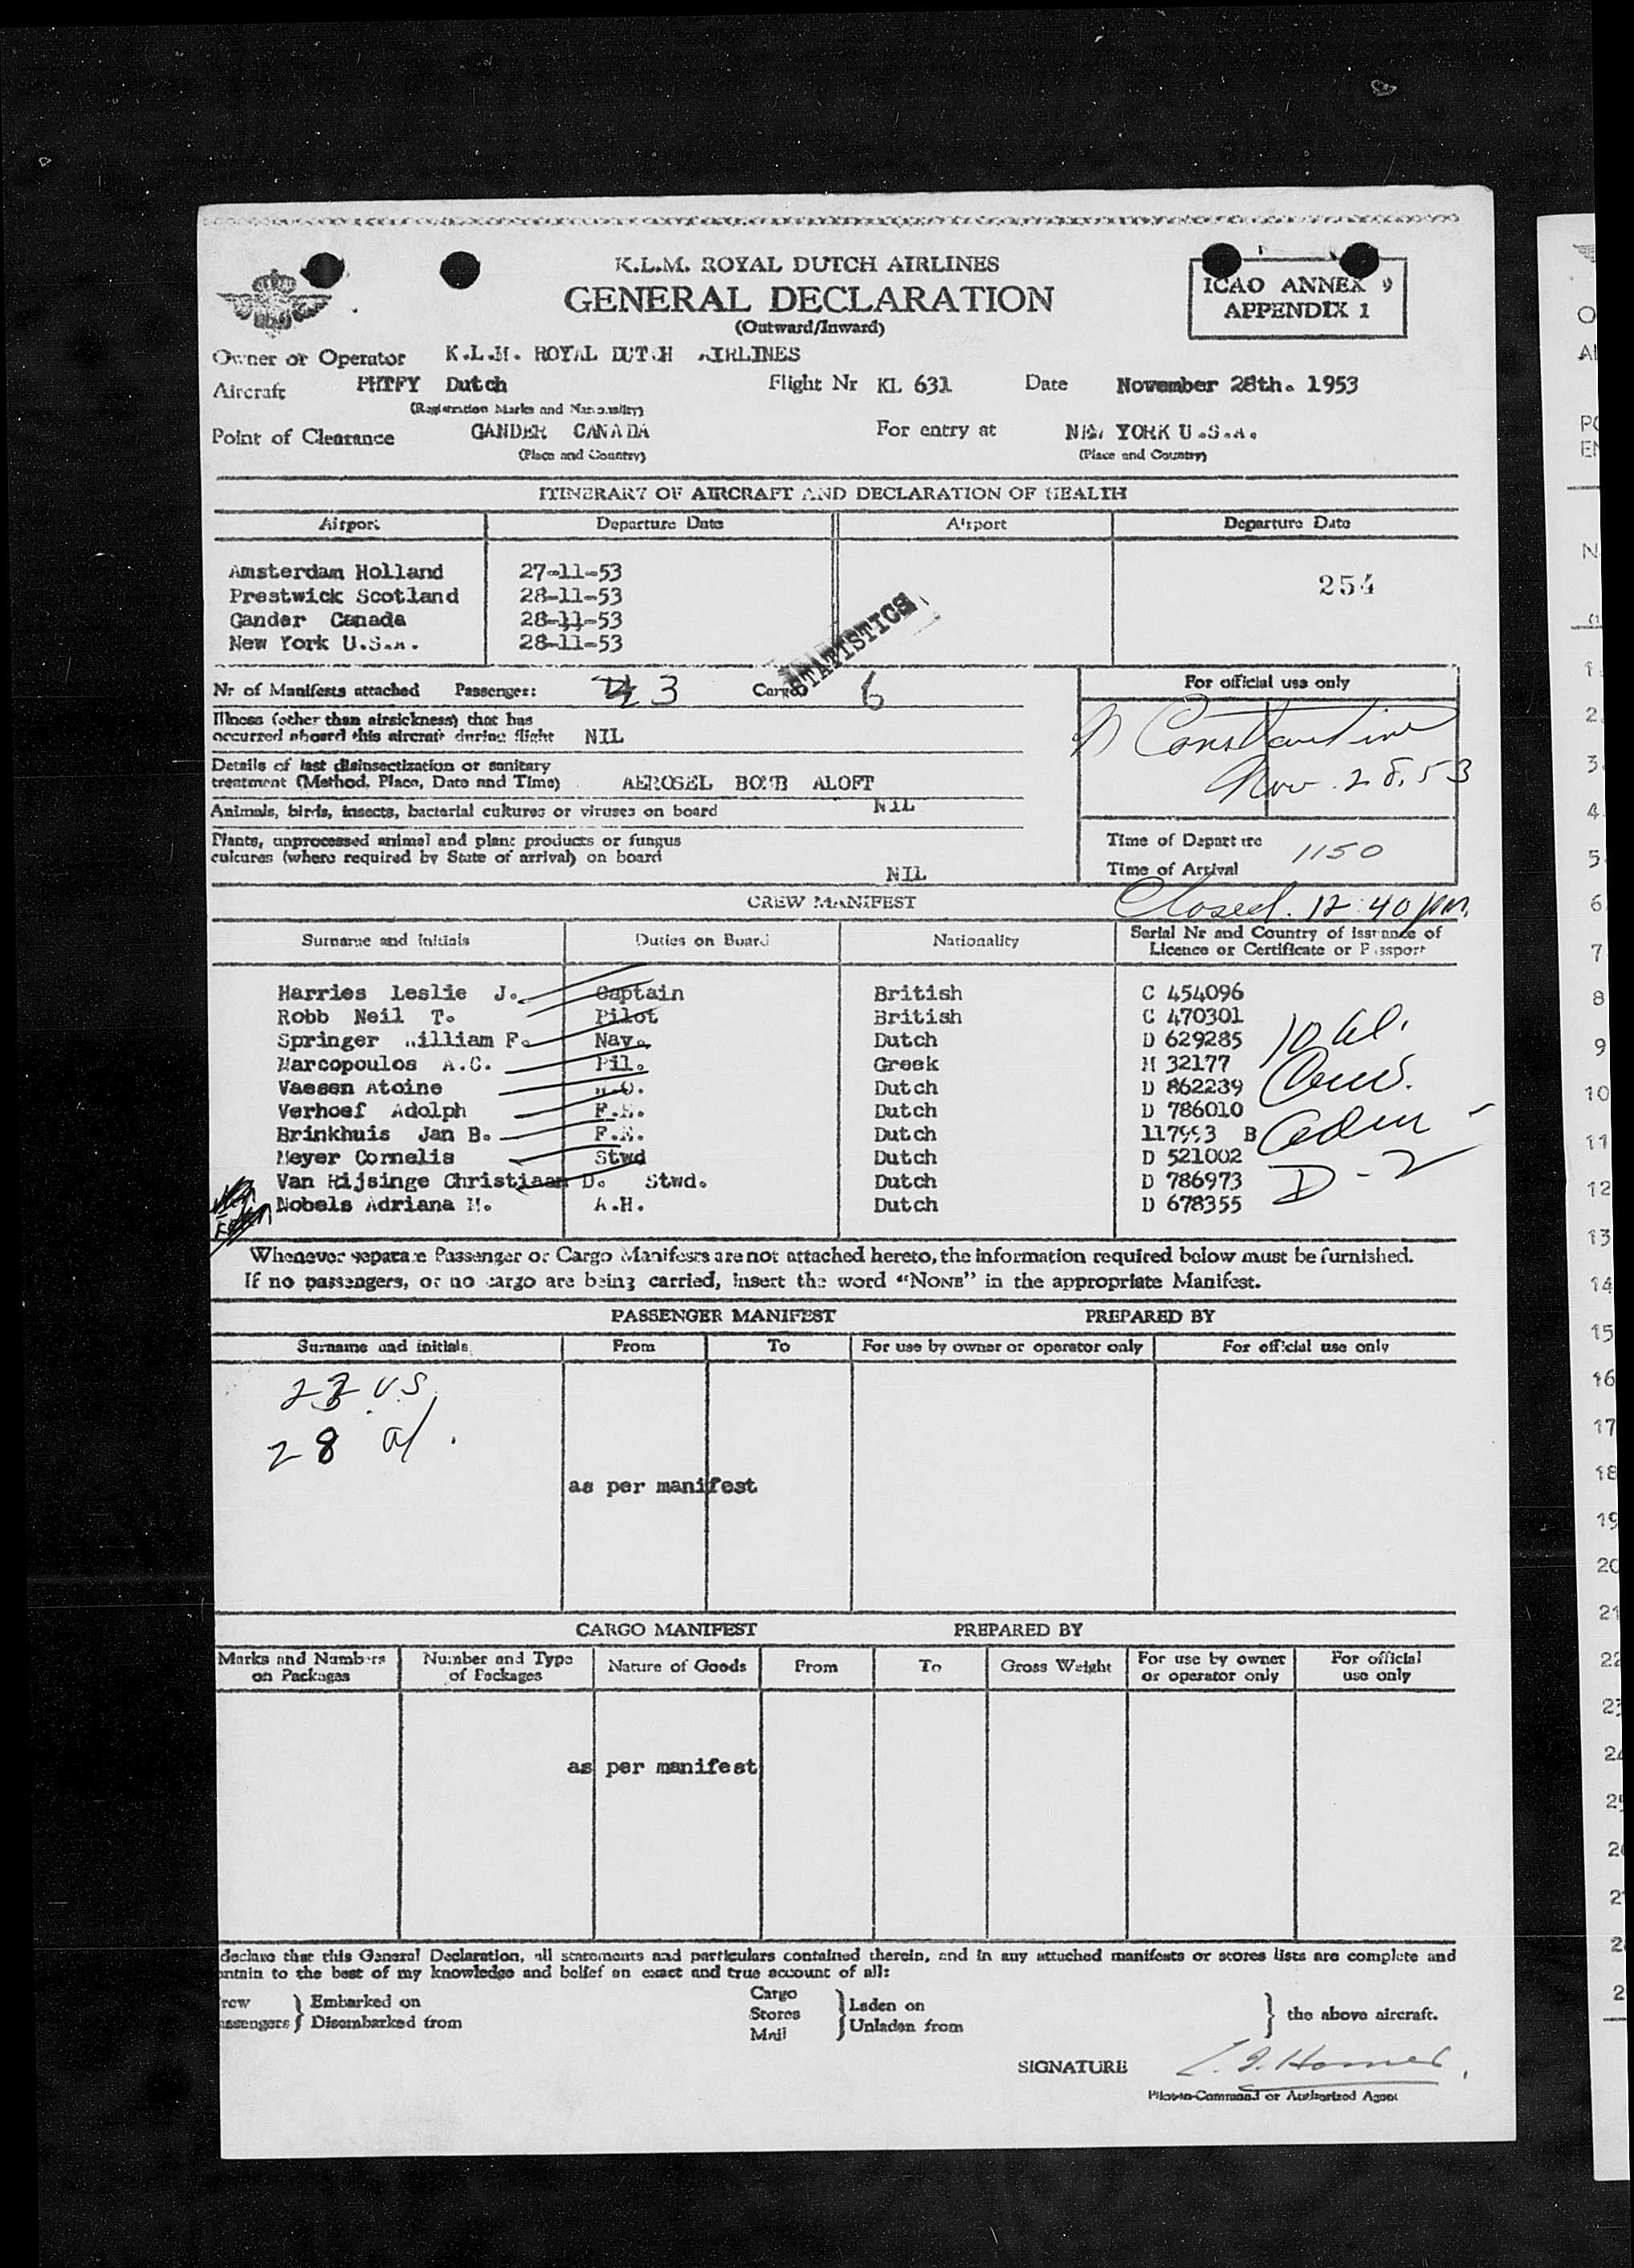 K.L.M. ROYAL DUTCH AIRLINES
GENERAL DECLARATION
(Outward/Inward)
ICAO ANNEX 9
APPENDIX 1
Owner or Operator K.L.M. ROYAL DUTCH AIRLINES
Aircraft PHTFY Dutch Flight Nr KL 631 Date November 28th. 1953
(Registration Marks and Nationality)
Point of Clearance GANDER CANADA For entry at NEW YORK U.S.A.
(Place and Country) (Place and Country)
ITINERARY OF AIRCRAFT AND DECLARATION OF HEALTH
Airport Departure Date Airport Departure Date
Amsterdam Holland 27-11-53
254
Prestwick Scotland 28-11-53
Gander Canada 28-11-53
New York U.S.A. 28-11-53
STATISTICS
Nr of Manifests attached Passenger: 3 Cargo 6
For official use only
Illness (other than airsickness) that has
occurred aboard this aircraft during flight NIL
N Constantine
Nov. 28, 53
Details of last disinsectization or sanitary
treatment (Method, Place, Date and Time) AEROSEL BOMB ALOFT
Animals, birds, insects, bacterial cultures or viruses on board NIL
Plants, unprocessed animal and plant products or fungus
cultures (where required by State of arrival) on board
NIL
Time of Departure
1150
Time of Arrival
CREW MANIFEST
Closed. 12:40 pm.
Surname and Initials Duties on Board Nationality Serial Nr and Country of issuance of
Licence or Certificate or Passport
Harries Leslie J. Captain British C 454096
Robb Neil T. Pilot British C 470301
Springer William F. Nav. Dutch D 629285
Marcopoulos A.C. Pil. Greek M 32177
Vaesen Atoine .O. Dutch D 862239
Verhoef Adolph F.E. Dutch D 786010
Brinkhuis Jan B. F.E. Dutch 117993 B
Meyer Cornelis Stwd Dutch D 521002
Van Rijsinge Christiaan D. Stwd. Dutch D 786973
Nobels Adriana M. A.H. Dutch D 678355
10 al.
Crew.
Adm
D-2
Whenever separate Passenger or Cargo Manifests are not attached hereto, the information required below must be furnished.
If no passengers, or no cargo are being carried, insert the word "NONE" in the appropriate Manifest.
PASSENGER MANIFEST PREPARED BY
Surname and initials From To For use by owner or operator only For official use only
23 U.S.
28 al.
as per manifest
CARGO MANIFEST PREPARED BY
Marks and Numbers
on Packages
Number and Type
of Packages
Nature of Goods From To Gross Weight
For use by owner
or operator only
For official
use only
as per manifest
declare that this General Declaration, all statements and particulars contained therein, and in any attached manifests or stores lists are complete and
ontain to the best of my knowledge and belief an exact and true account of all:
rew
assengers
Embarked on
Disembarked from
Cargo
Stores
Mail
Laden on
Unladen from
the above aircraft.
SIGNATURE
Pilot-in-Command or Authorized Agent
1
2
3
4
5
6
7
8
9
10
11
12
13
14
15
16
17
18
19
20
21
22